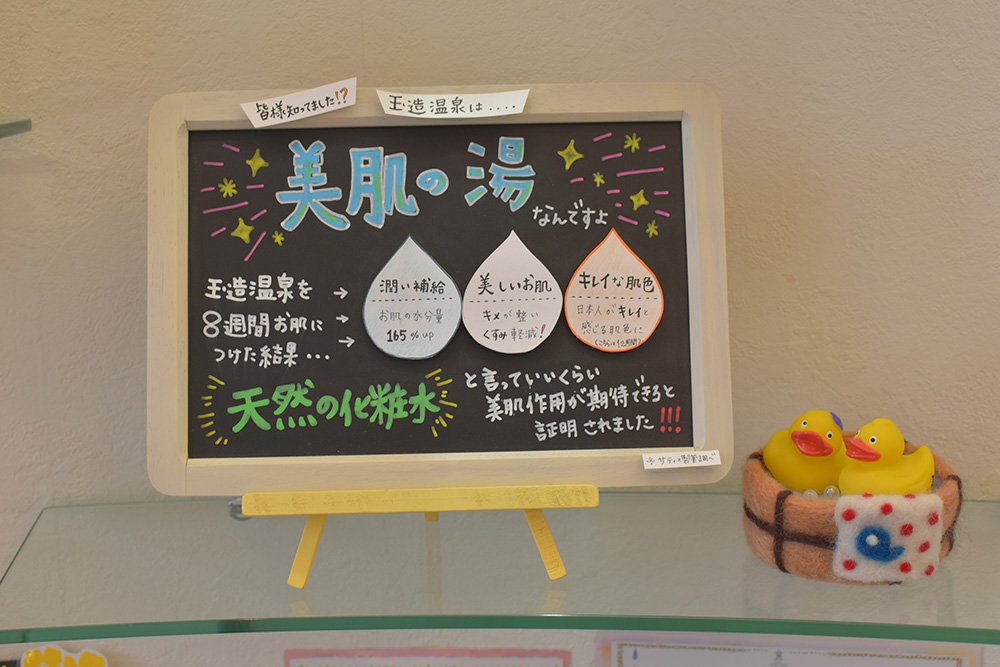 皆様知ってました!?
玉造温泉は....
美肌の湯
なんですよ
玉造温泉を →
8週間お肌に →
つけた結果・・・ →
潤い補給
お肌の水分量
165%up
美しいお肌
キメが整い
くすみ軽減!
キレイな肌色
日本人がキレイと
感じる肌色に
天然の化粧水
と言っていいくらい
美肌作用が期待できると
証明されました!!!
※サティス製薬調べ